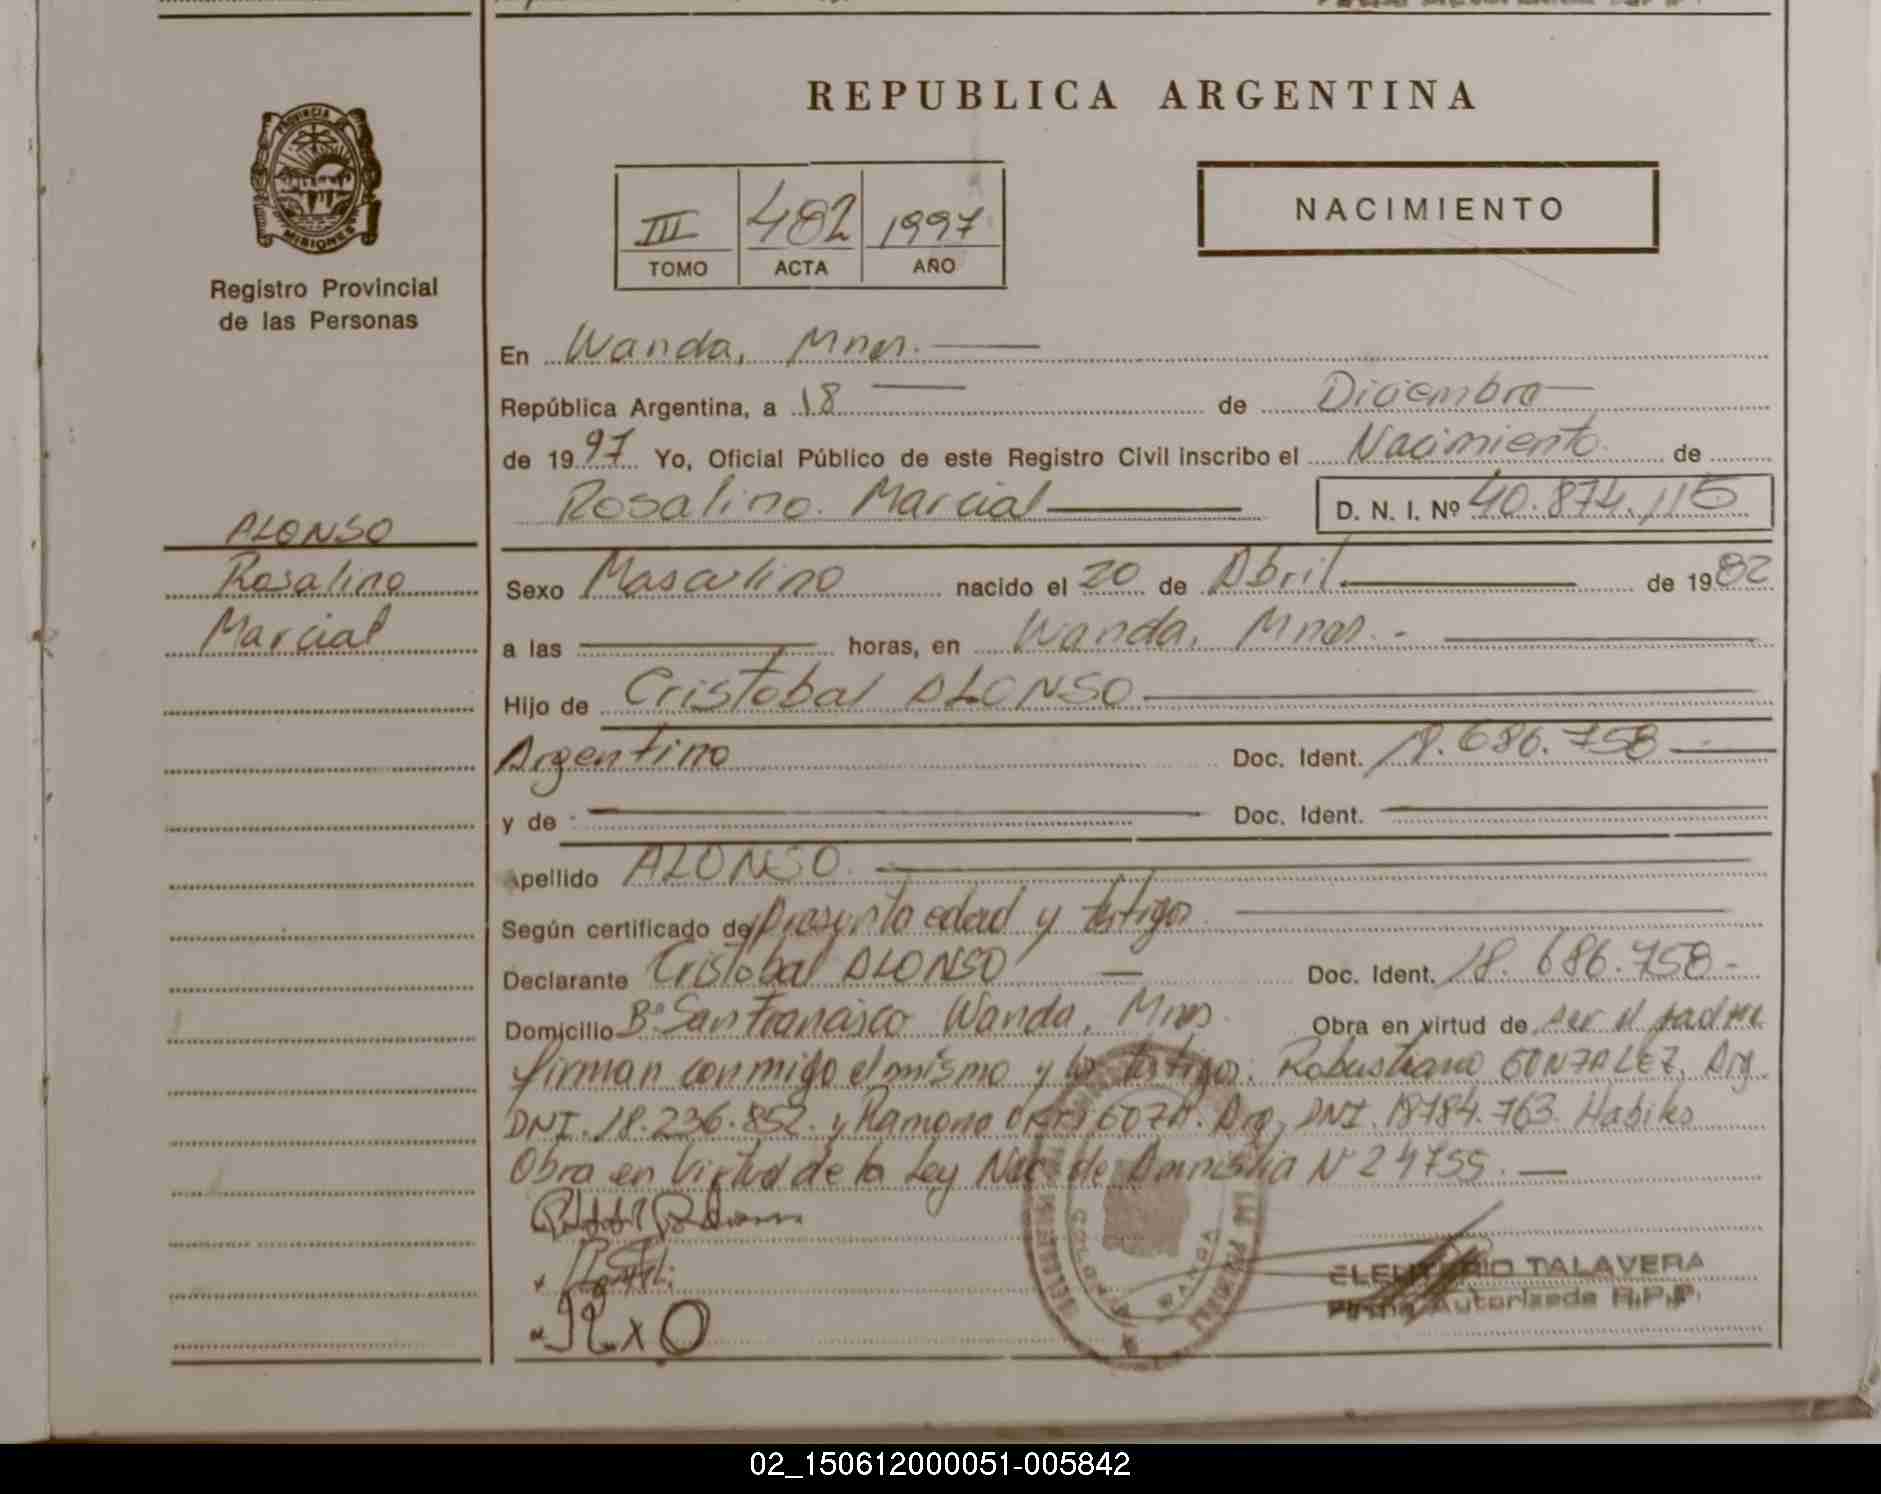 REPUBLICA ARGENTINA
PROVINCIA DE
MISIONES
Registro Provincial
de las Personas
III 402 1997
TOMO ACTA AÑO
NACIMIENTO
En Wanda, Mnes.
República Argentina, a 18 de Diciembre
de 1997 Yo, Oficial Público de este Registro Civil inscribo el Nacimiento de
Rosalino Marcial D. N. I. Nº 40.874.115
ALONSO
Rosalino
Marcial
Sexo Masculino nacido el 20 de Abril de 1982
a las horas, en Wanda, Mnes.-
Hijo de Cristobal ALONSO
Argentino Doc. Ident. 18.686.758
y de Doc. Ident.
Apellido ALONSO.
Según certificado de presunta edad y testigos
Declarante Cristobal ALONSO Doc. Ident. 18.686.758-
Domicilio Bº San Francisco Wanda, Mnes. Obra en virtud de ser el padre
firman conmigo el mismo y los testigos: Robustiano GONZALEZ, Arg.
DNI. 18.236.852. y Ramona Arg, DNI. 18784.763. Habiles
Obra en Virtud de la Ley Nac. de Amnistia Nº 24755.
WANDA
ELEUTERIO TALAVERA
Firma Autorizada R.P.P.
02_150612000051-005842